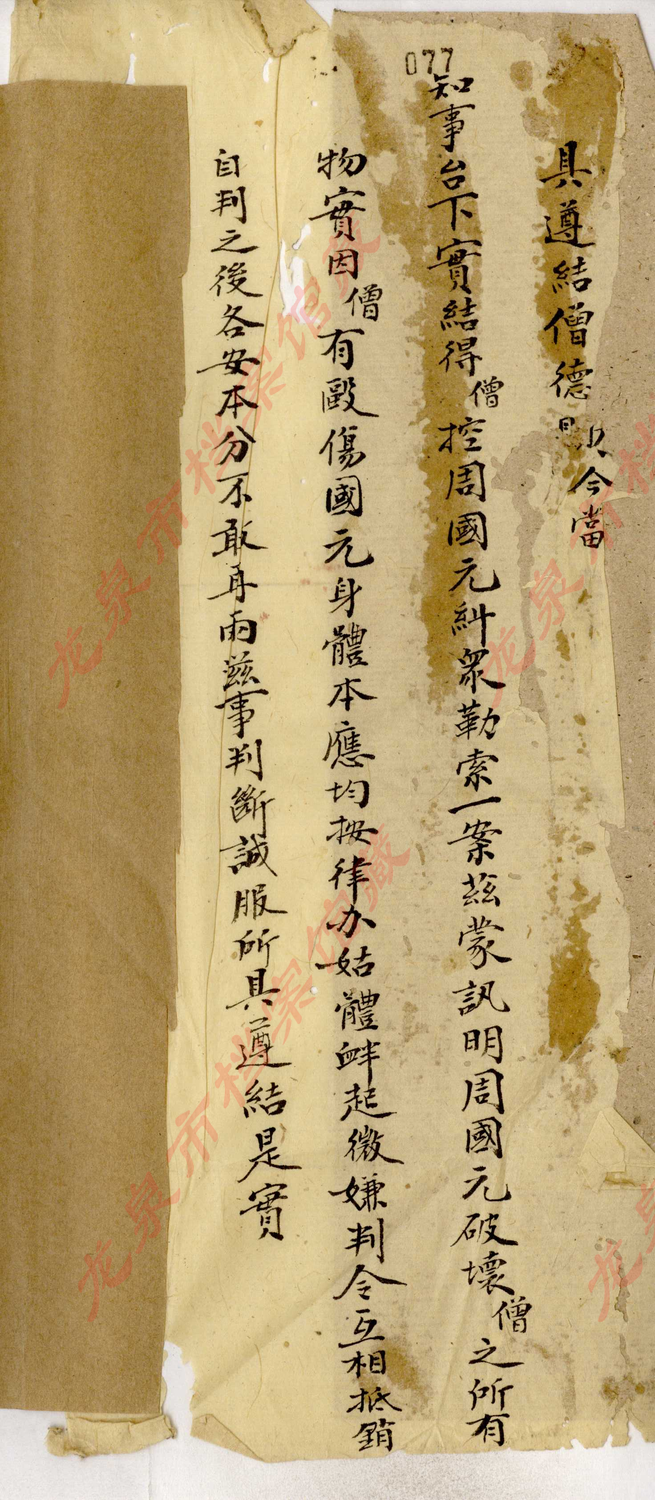 077
具遵結僧德 今當
知事台下實結得僧控周國元糾眾勒索一案茲蒙訊明周國元破壞僧之所有
物實因僧有毆傷國元身體本應均按律办姑體衅起微嫌判令互相抵銷
自判之後各安本分不敢再雨滋事判斷誠服所具遵結是實
龙泉市档案馆藏
龙泉市档案馆藏